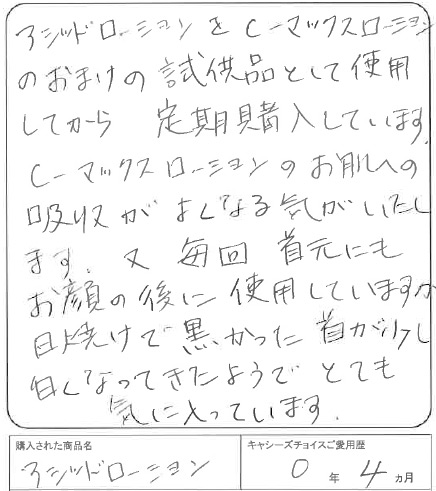 アシッドローションをC-マックスローション
のおまけの試供品として使用
してから 定期購入しています。
C-マックスローションのお肌への
吸収がよくなる気がいたし
ます。又 毎回 首元にも
お顔の後に使用していますが
日焼けで黒かった首が少し
白くなってきたようでとても
気に入っています。
購入された商品名
アシッドローション
キャシーズチョイスご愛用歴
0年 4ヵ月